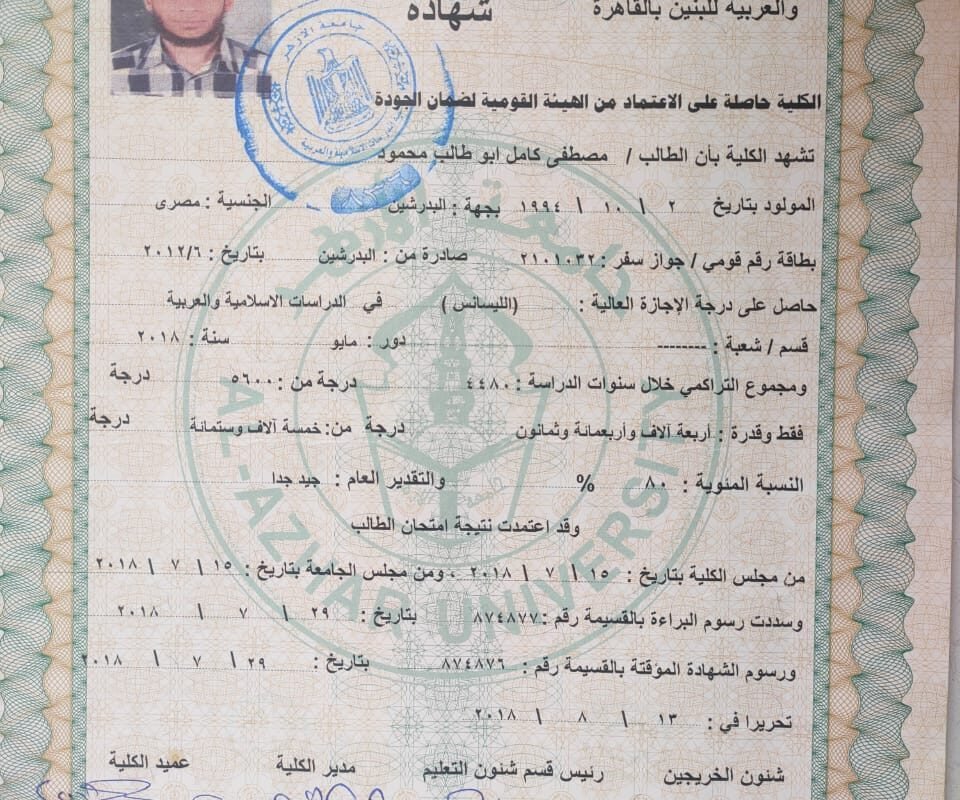 والعربية للبنين بالقاهرة
شهادة
جامعة الأزهر
الكلية حاصلة على الاعتماد من الهيئة القومية لضمان الجودة
تشهد الكلية بأن الطالب / مصطفى كامل ابو طالب محمود
المولود بتاريخ ٢ \ ١٠ \ ١٩٩٤ بجهة : البدرشين الجنسية : مصرى
بطاقة رقم قومي / جواز سفر : ٢١٠١٠٣٢ صادرة من : البدرشين بتاريخ : ٢٠١٢/٦
حاصل على درجة الإجازة العالية : (الليسانس ) في الدراسات الاسلامية والعربية
قسم / شعبة : -------- دور : مايو سنة : ٢٠١٨
ومجموع التراكمي خلال سنوات الدراسة : ٤٤٨٠ درجة من : ٥٦٠٠ درجة
فقط وقدرة : أربعة آلاف وأربعمائة وثمانون درجة من: خمسة آلاف وستمائة درجة
النسبة المئوية : ٨٠ % والتقدير العام : جيد جدا
وقد اعتمدت نتيجة امتحان الطالب
من مجلس الكلية بتاريخ : ١٥ \ ٧ \ ٢٠١٨ ، ومن مجلس الجامعة بتاريخ : ١٥ \ ٧ \ ٢٠١٨
وسددت رسوم البراءة بالقسيمة رقم : ٨٧٤٨٧٧ بتاريخ : ٢٩ \ ٧ \ ٢٠١٨
ورسوم الشهادة المؤقتة بالقسيمة رقم : ٨٧٤٨٧٦ بتاريخ : ٢٩ \ ٧ \ ٢٠١٨
تحريرا في : ١٣ \ ٨ \ ٢٠١٨
شئون الخريجين رئيس قسم شئون التعليم مدير الكلية عميد الكلية
AL-AZHAR UNIVERSITY